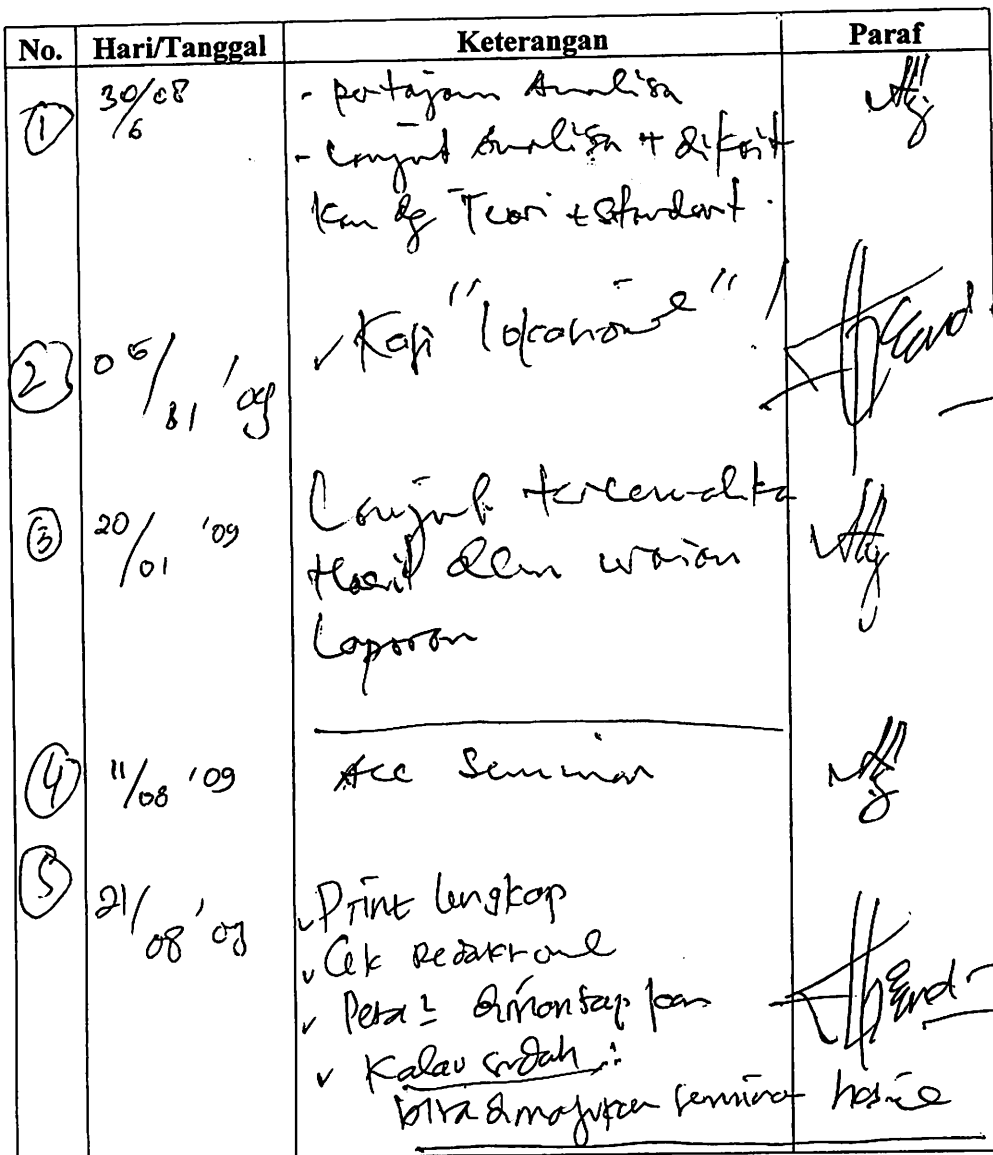 No. Hari/Tanggal Keterangan Paraf
① 30/08 - pertajam Analisa
/6 - Lanjut Analisa + dikait
kan dg Teori + Standart.
② 05/ '09 ✓ Kaji "lokasional"
③ 20/01 '09 Lanjut
Hasil dlm uraian
Laporan
④ 11/08 '09 Acc Seminar
⑤ 21/08 '09 ✓ Print lengkap
✓ Cek Redaksional
✓ Peta2 dimantapkan
✓ Kalau sudah:
bisa dimajukan seminar hasil